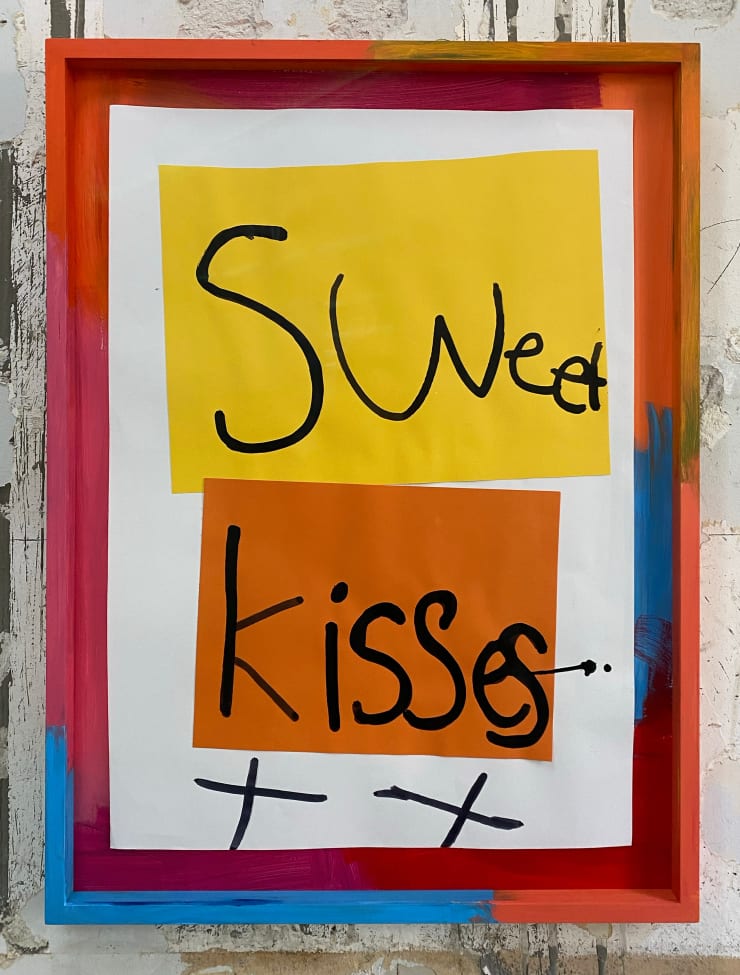 Sweet
kisses
x x